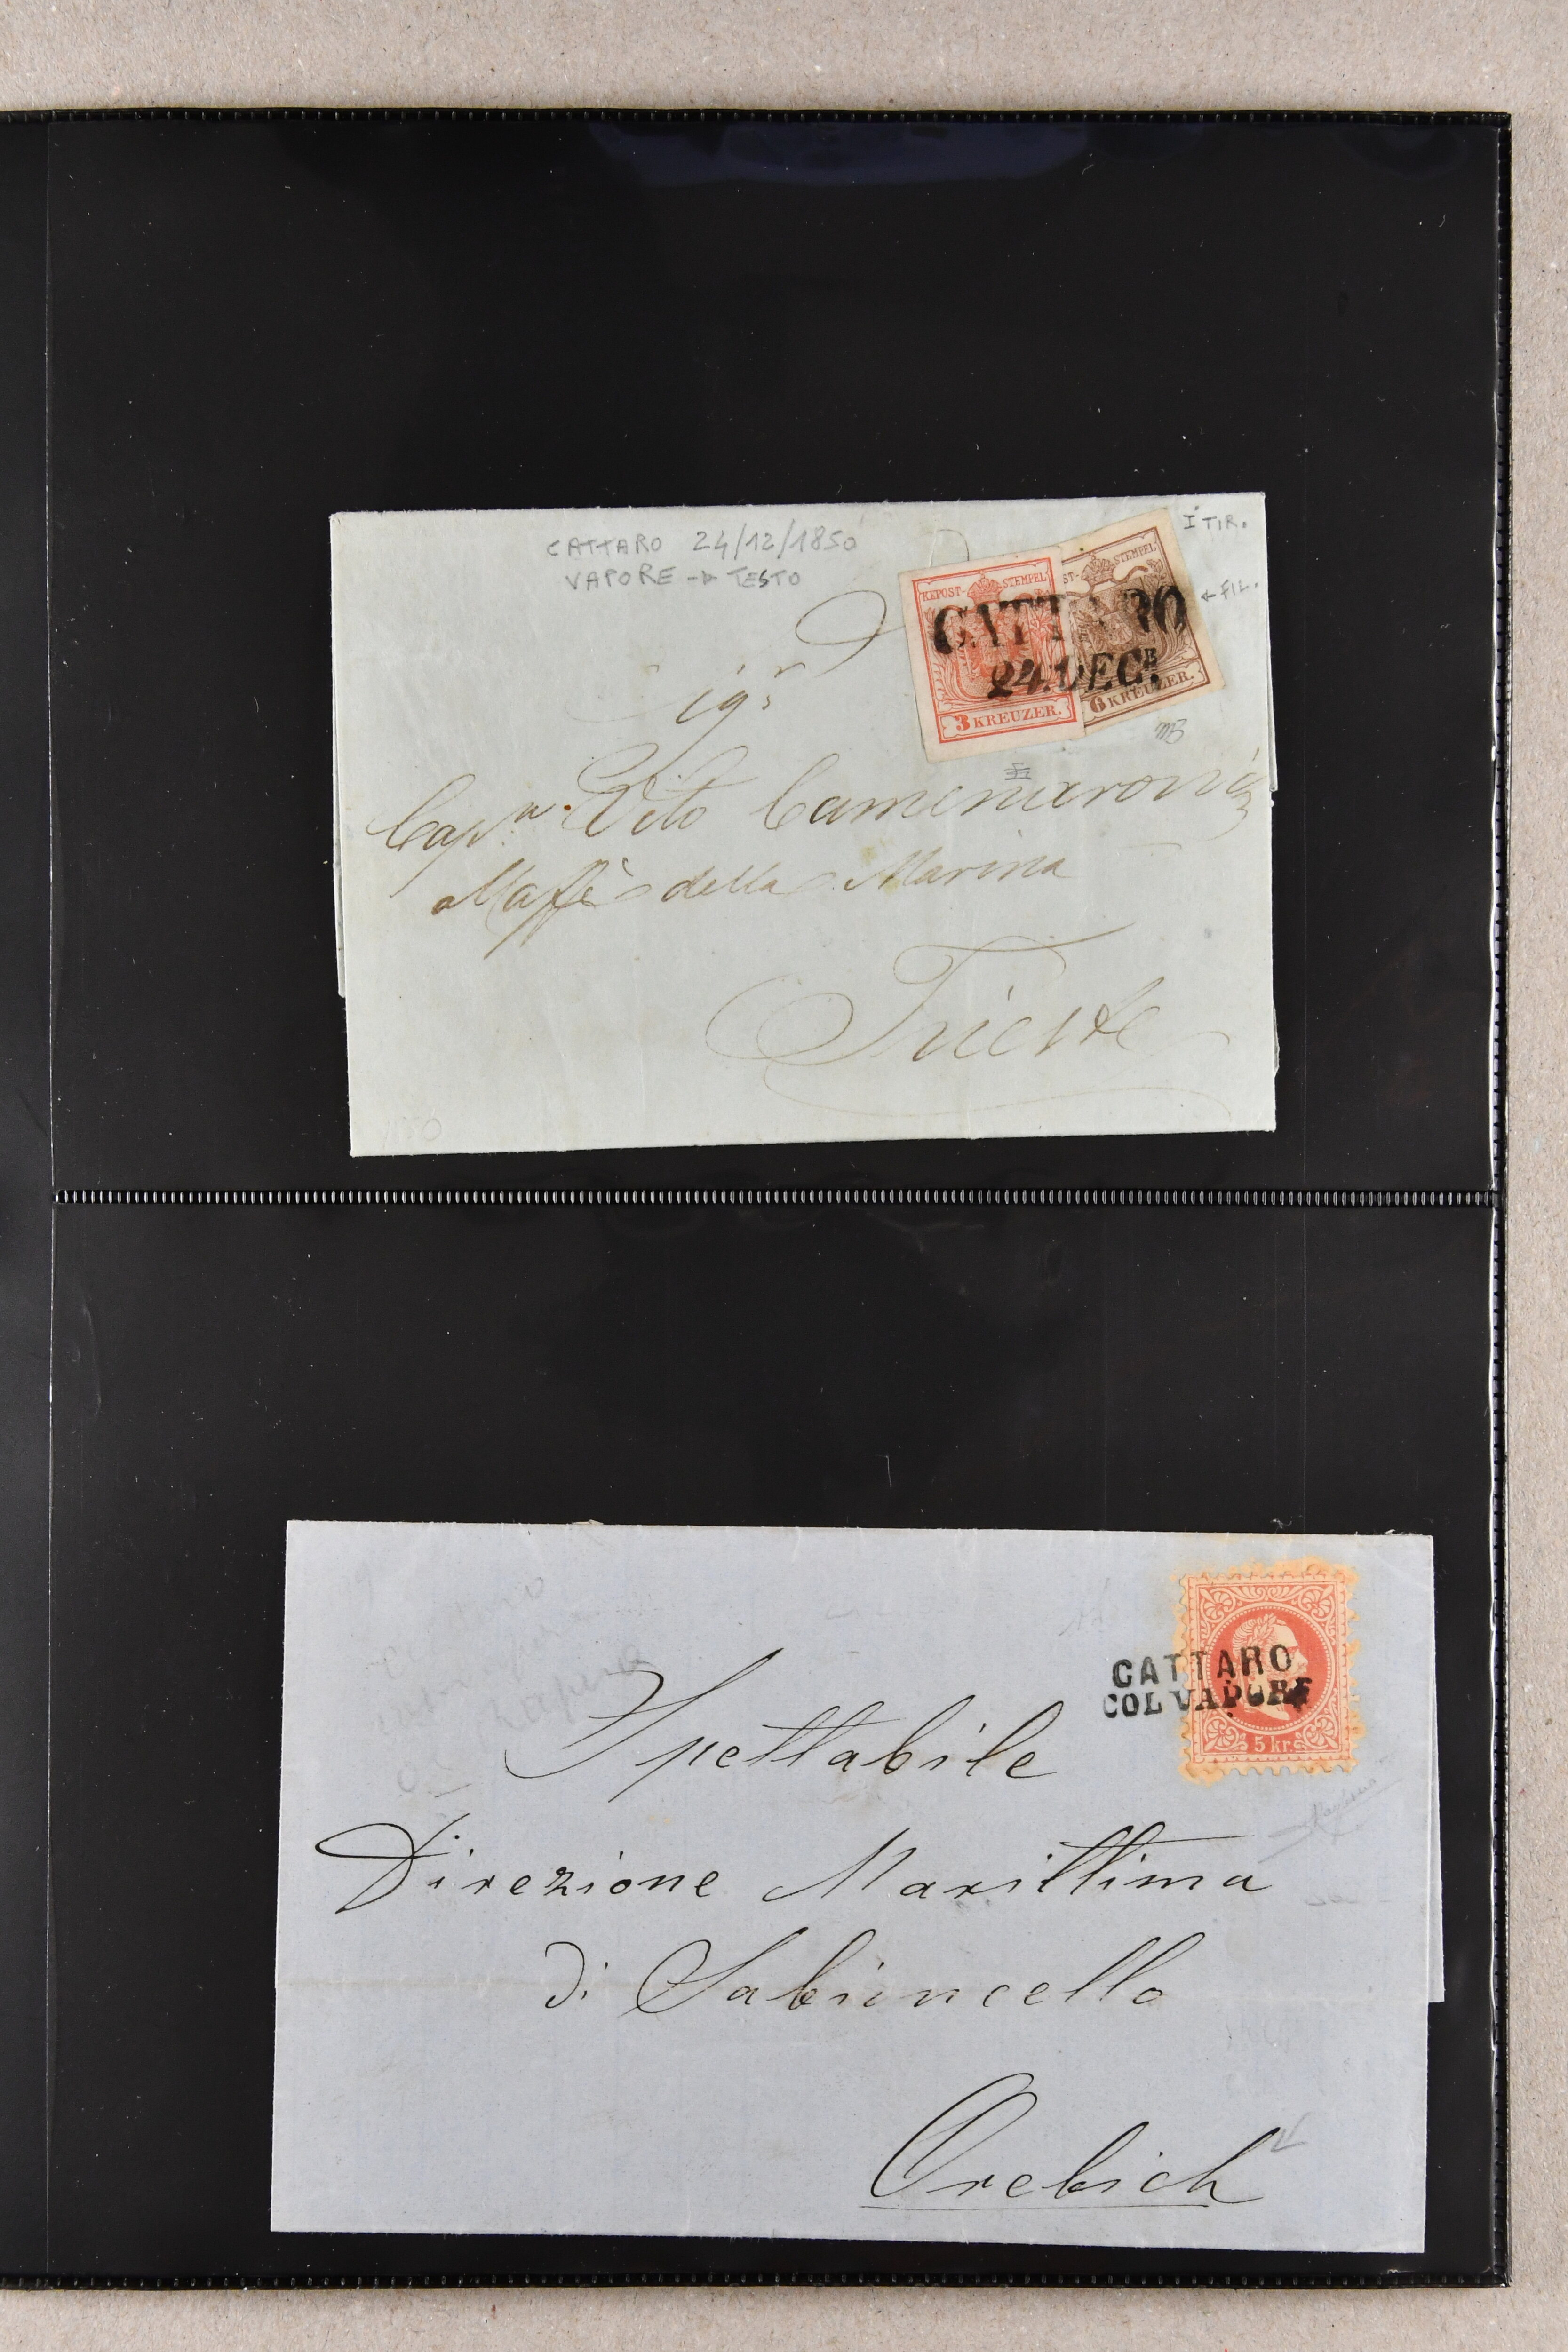 CATTARO 24/12/1850
VAPORE → TESTO
I TIR.
← FIL.
KKPOST-STEMPEL
ST-STEMPEL
CATTARO
24.DECB.
3 KREUZER.
6 KREUZER.
Sigr
Vito
della Marina
Trieste
1850
CATTARO
COL VAPORE
5 kr.
Spettabile
Direzione Marittima
di Sabioncello
Orebich